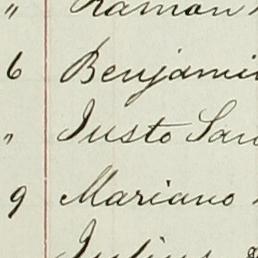 " Ramon
6 Benjamin
" Justo San
9 Mariano
Julius